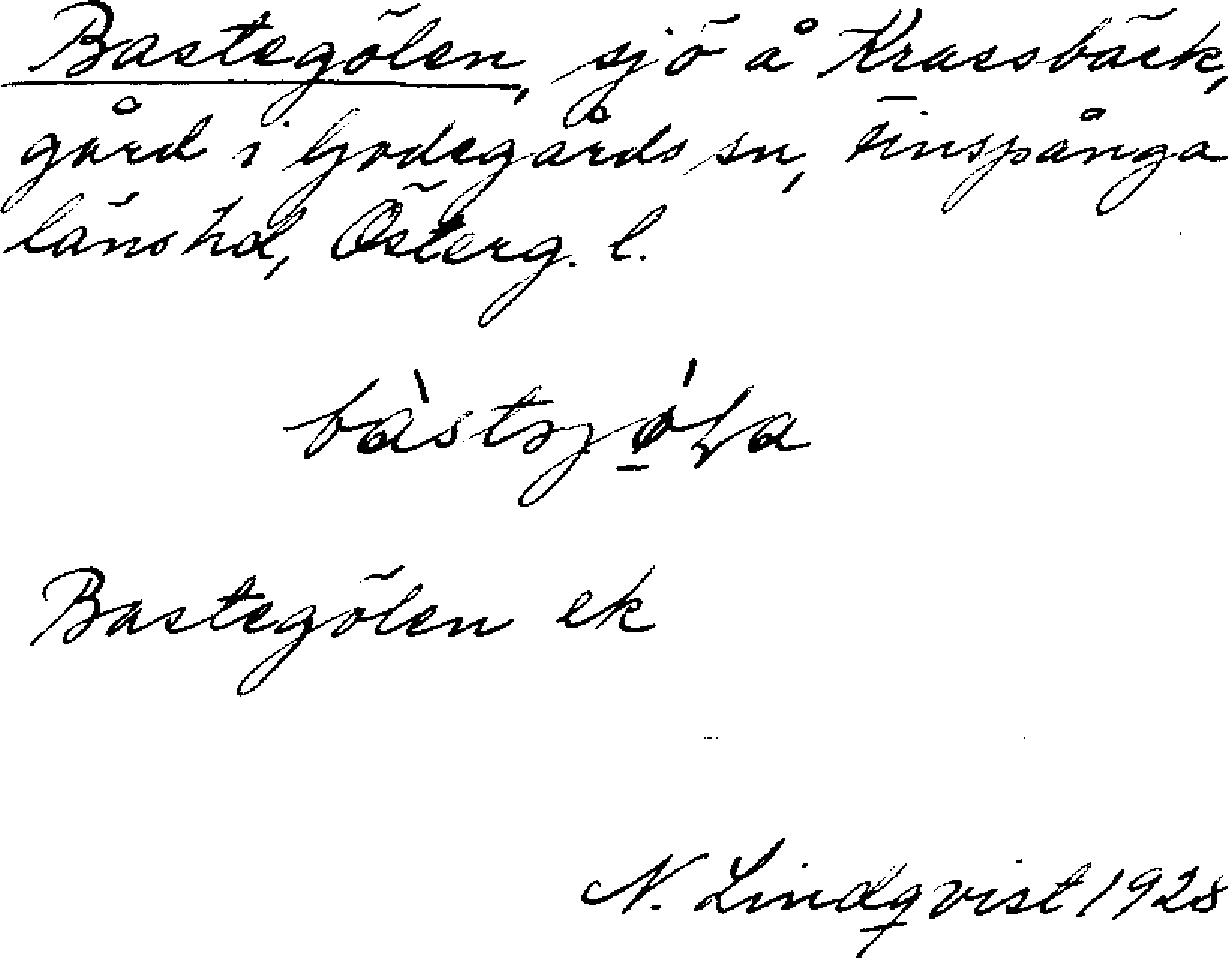 Bastegölen, sjö å Krassbäck,
gård i Godegårds sn, Finspånga
läns hd, Österg. l.
Bastegölen ek
N. Lindqvist 1928